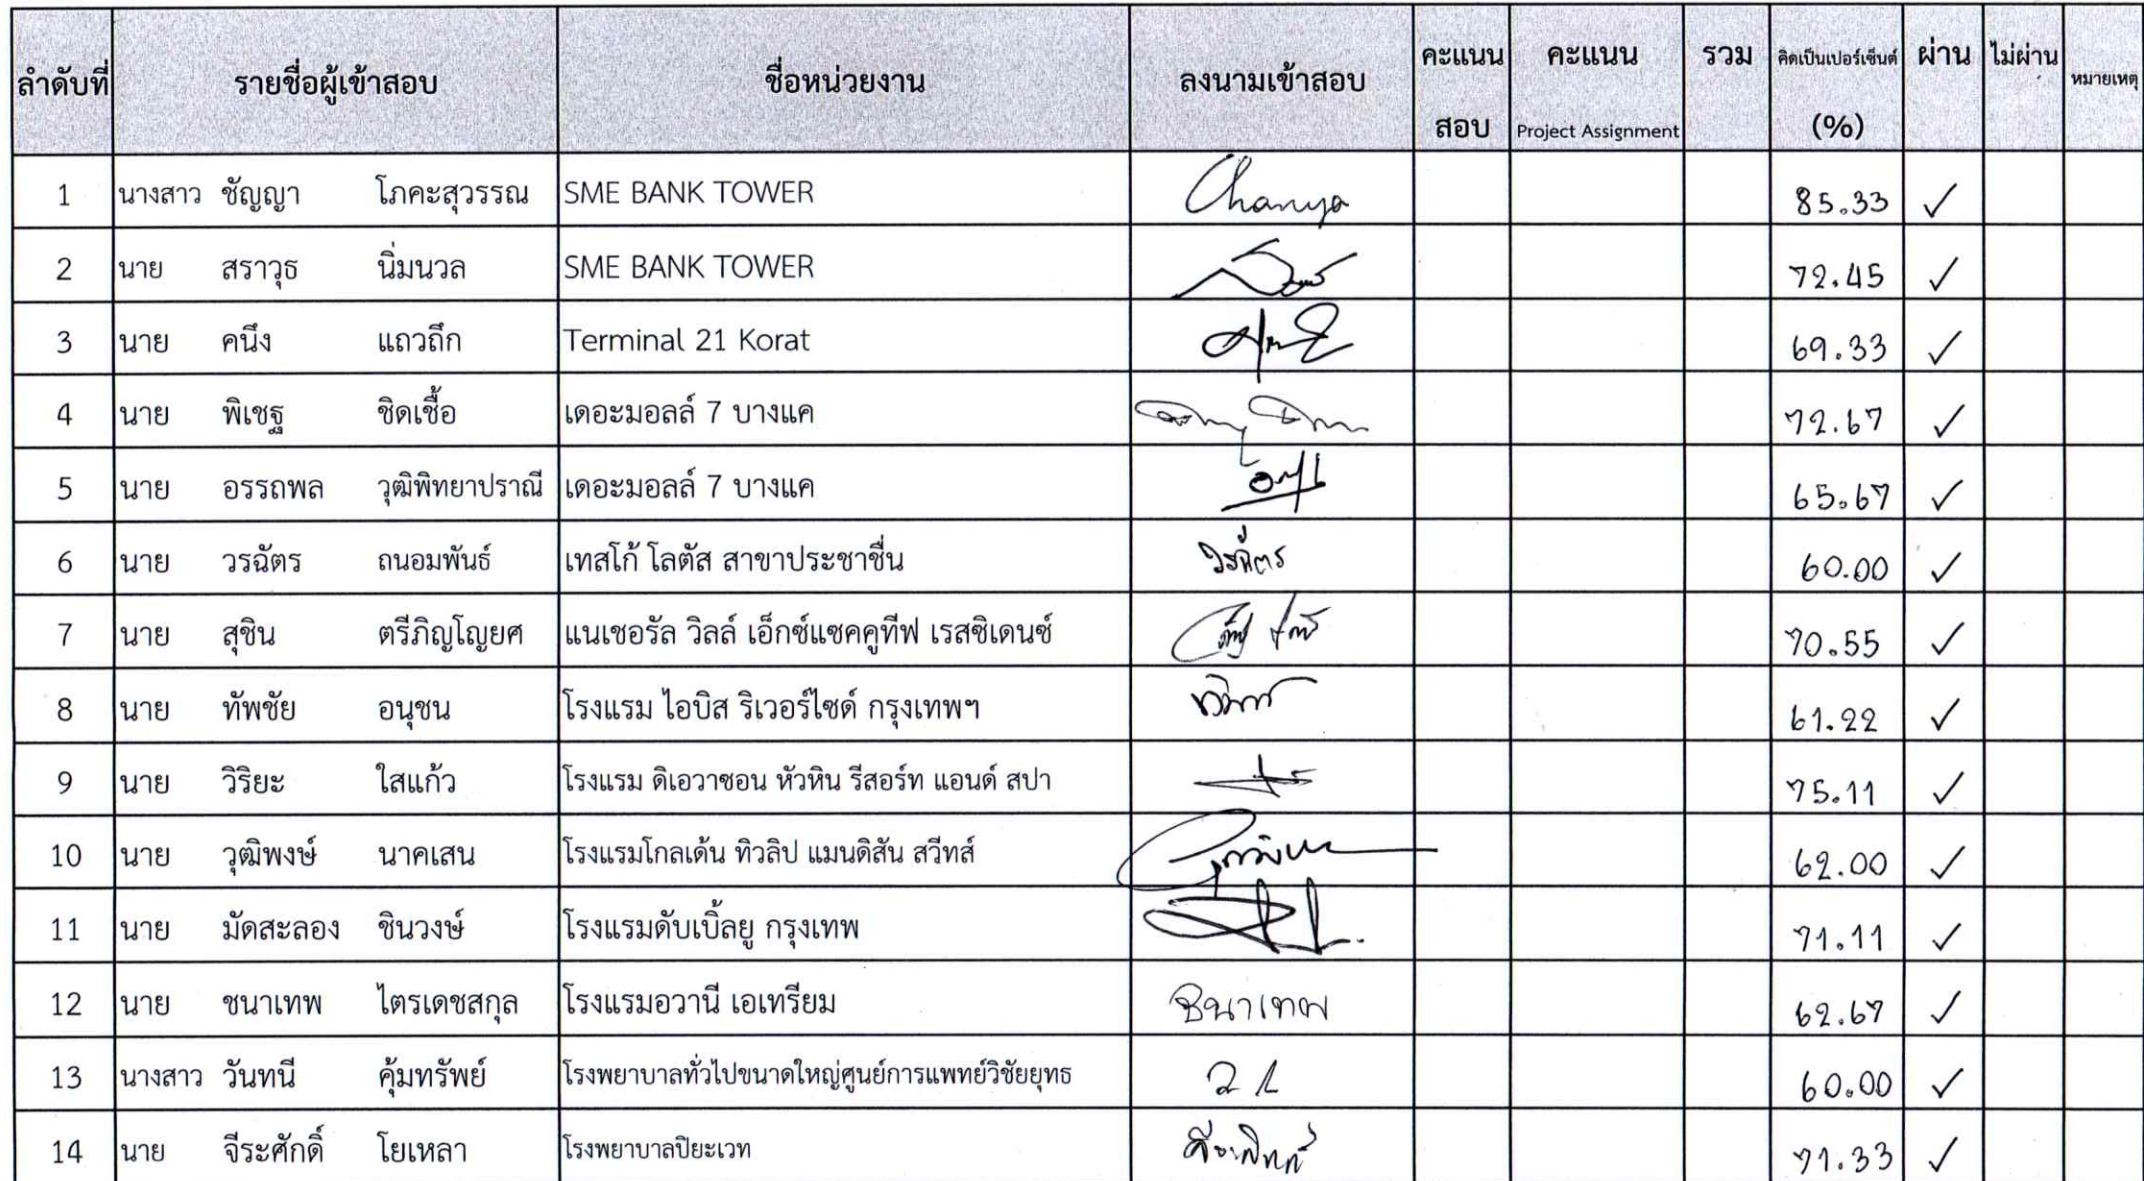 ลำดับที่ รายชื่อผู้เข้าสอบ ชื่อหน่วยงาน ลงนามเข้าสอบ คะแนนสอบ คะแนน Project Assignment รวม คิดเป็นเปอร์เซ็นต์ (%) ผ่าน ไม่ผ่าน หมายเหตุ
1 นางสาว ชัญญา โภคะสุวรรณ SME BANK TOWER Chanya 85.33 ✓
2 นาย สราวุธ นิ่มนวล SME BANK TOWER 72.45 ✓
3 นาย คนึง แถวถึก Terminal 21 Korat 69.33 ✓
4 นาย พิเชฐ ชิดเชื้อ เดอะมอลล์ 7 บางแค 72.67 ✓
5 นาย อรรถพล วุฒิพิทยาปราณี เดอะมอลล์ 7 บางแค 65.67 ✓
6 นาย วรฉัตร ถนอมพันธ์ เทสโก้ โลตัส สาขาประชาชื่น วรฉัตร 60.00 ✓
7 นาย สุชิน ตรีภิญโญยศ แนเชอรัล วิลล์ เอ็กซ์แซคคูทีฟ เรสซิเดนซ์ 70.55 ✓
8 นาย ทัพชัย อนุชน โรงแรม ไอบิส ริเวอร์ไซด์ กรุงเทพฯ 61.22 ✓
9 นาย วิริยะ ใสแก้ว โรงแรม ดิเอวาซอน หัวหิน รีสอร์ท แอนด์ สปา 75.11 ✓
10 นาย วุฒิพงษ์ นาคเสน โรงแรมโกลเด้น ทิวลิป แมนดิสัน สวีทส์ 62.00 ✓
11 นาย มัดสะลอง ชินวงษ์ โรงแรมดับเบิ้ลยู กรุงเทพ 71.11 ✓
12 นาย ชนาเทพ ไตรเดชสกุล โรงแรมอวานี เอเทรียม ชนาเทพ 62.67 ✓
13 นางสาว วันทนี คุ้มทรัพย์ โรงพยาบาลทั่วไปขนาดใหญ่ศูนย์การแพทย์วิชัยยุทธ 60.00 ✓
14 นาย จีระศักดิ์ โยเหลา โรงพยาบาลปิยะเวท 71.33 ✓